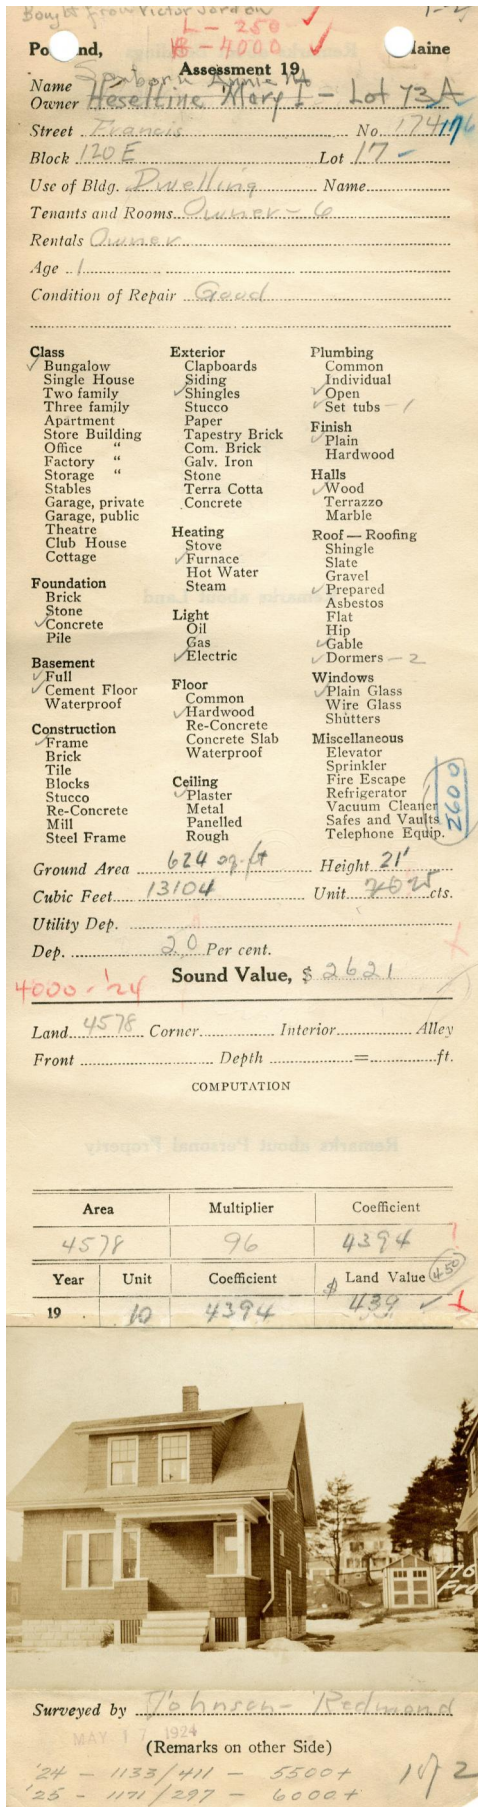 Bought from Victor Jordan
L - 250 ✓
B - 4000 ✓
Portland, Maine
Assessment 19
Sanborn Annie M
Name
Owner Heseltine Mary I - Lot 73 A
Street Francis No. 174 176
Block 120 E Lot 17 -
Use of Bldg. Dwelling Name
Tenants and Rooms Owner - 6
Rentals Owner
Age 1
Condition of Repair Good
Class
✓ Bungalow
Single House
Two family
Three family
Apartment
Store Building
Office "
Factory "
Storage "
Stables
Garage, private
Garage, public
Theatre
Club House
Cottage
Foundation
Brick
Stone
✓ Concrete
Pile
Basement
✓ Full
✓ Cement Floor
Waterproof
Construction
✓ Frame
Brick
Tile
Blocks
Stucco
Re-Concrete
Mill
Steel Frame
Exterior
Clapboards
Siding
✓ Shingles
Stucco
Paper
Tapestry Brick
Com. Brick
Galv. Iron
Stone
Terra Cotta
Concrete
Heating
Stove
✓ Furnace
Hot Water
Steam
Light
Oil
Gas
✓ Electric
Floor
Common
✓ Hardwood
Re-Concrete
Concrete Slab
Waterproof
Ceiling
✓ Plaster
Metal
Panelled
Rough
Plumbing
Common
Individual
✓ Open
✓ Set tubs - 1
Finish
✓ Plain
Hardwood
Halls
✓ Wood
Terrazzo
Marble
Roof — Roofing
Shingle
Slate
Gravel
✓ Prepared
Asbestos
Flat
Hip
✓ Gable
✓ Dormers - 2
Windows
✓ Plain Glass
Wire Glass
Shutters
Miscellaneous
Elevator
Sprinkler
Fire Escape
Refrigerator
Vacuum Cleaner
Safes and Vaults
Telephone Equip.
2600
Ground Area 624 sq. ft Height 21'
Cubic Feet 13104 Unit 25 cts.
Utility Dep.
Dep. 20 Per cent.
Sound Value, $ 2621
4000 - '24
Land 4578 Corner Interior Alley
Front Depth = ft.
COMPUTATION
Area Multiplier Coefficient
4578 96 4394
Year Unit Coefficient $ Land Value 450
19 10 4394 439 ✓
176
Fra
Surveyed by Johnson - Redmond
MAY 17 1924
(Remarks on other Side)
'24 - 1133/411 - 5500+
'25 - 1171/297 - 6000+
1 of 2